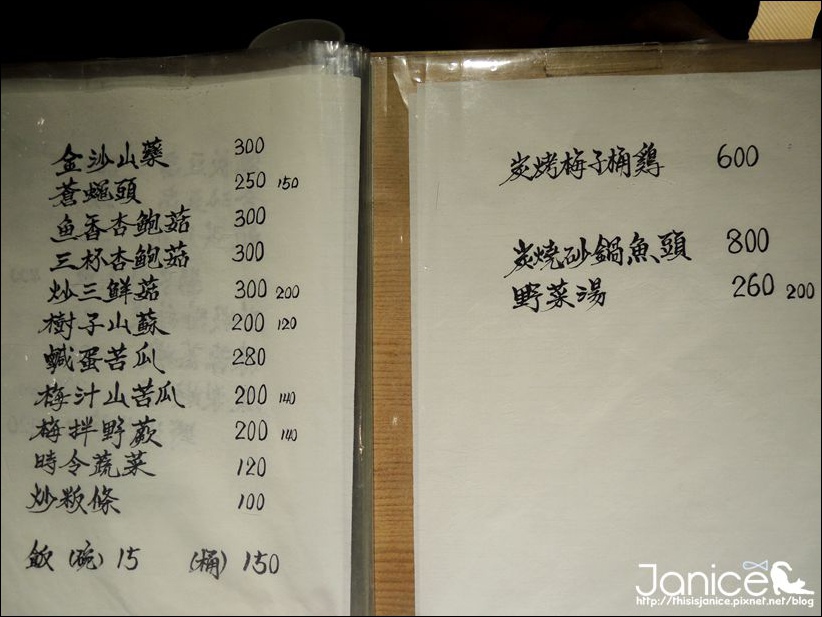 金沙山藥 300
蒼蠅頭 250 150
魚香杏鮑菇 300
三杯杏鮑菇 300
炒三鮮菇 300 200
樹子山蘇 200 120
鹹蛋苦瓜 280
梅汁山苦瓜 200 140
梅拌野蕨 200 140
時令蔬菜 120
炒粄條 100
飯(碗)15 (桶)150
炭烤梅子桶鷄 600
炭燒砂鍋魚頭 800
野菜湯 260 200
Janice
http://thisisjanice.pixnet.net/blog